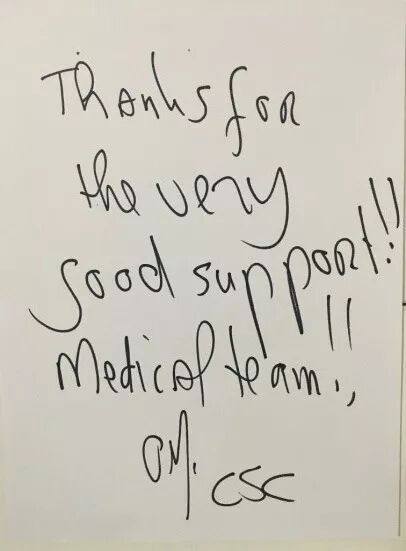 Thanks for
the very
good support!!
Medical team!!
OM. CSC